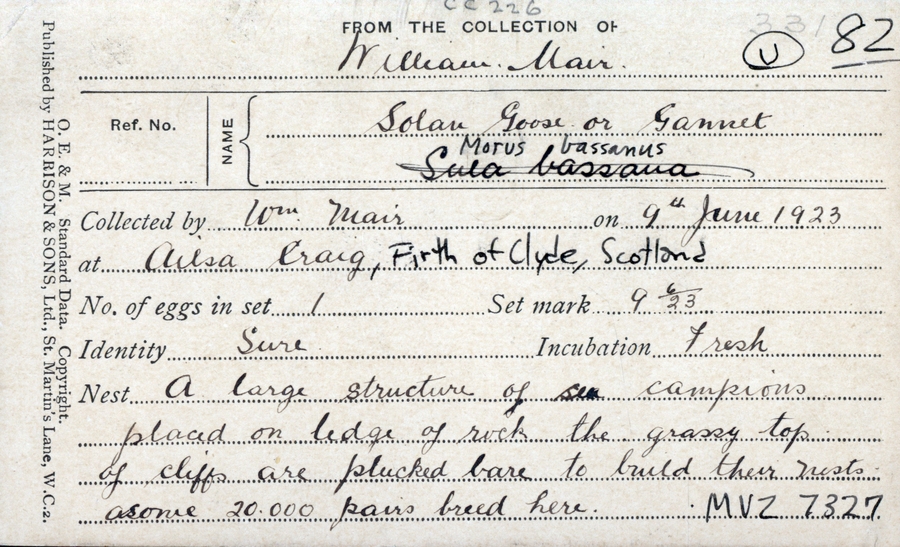 CC 226
FROM THE COLLECTION OF
331
William Mair.
U 82
Ref. No.
NAME
Solan Goose or Gannet
Morus bassanus
Sula bassana
Collected by Wm. Mair on 9th June 1923
at Ailsa Craig, Firth of Clyde, Scotland
No. of eggs in set 1 Set mark 9 6/23
Identity Sure Incubation Fresh
Nest A large structure of sea campions
placed on ledge of rock the grassy top
of cliffs are plucked bare to build their nests.
asome 20.000 pairs breed here. MVZ 7327
O. E. & M. Standard Data. Copyright.
Published by HARRISON & SONS, Ltd., St. Martin's Lane, W.C.2.